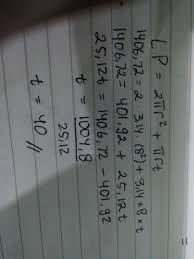 =
LP = 2πr² + πrt
1406,72 = 2 . 3.14 . (8²) + 3,14 × 8 × t
1406,72 = 401,92 + 25,12 t
25,12t = 1406,72 - 401,92
t = 1004,8
25,12
t = 40 //